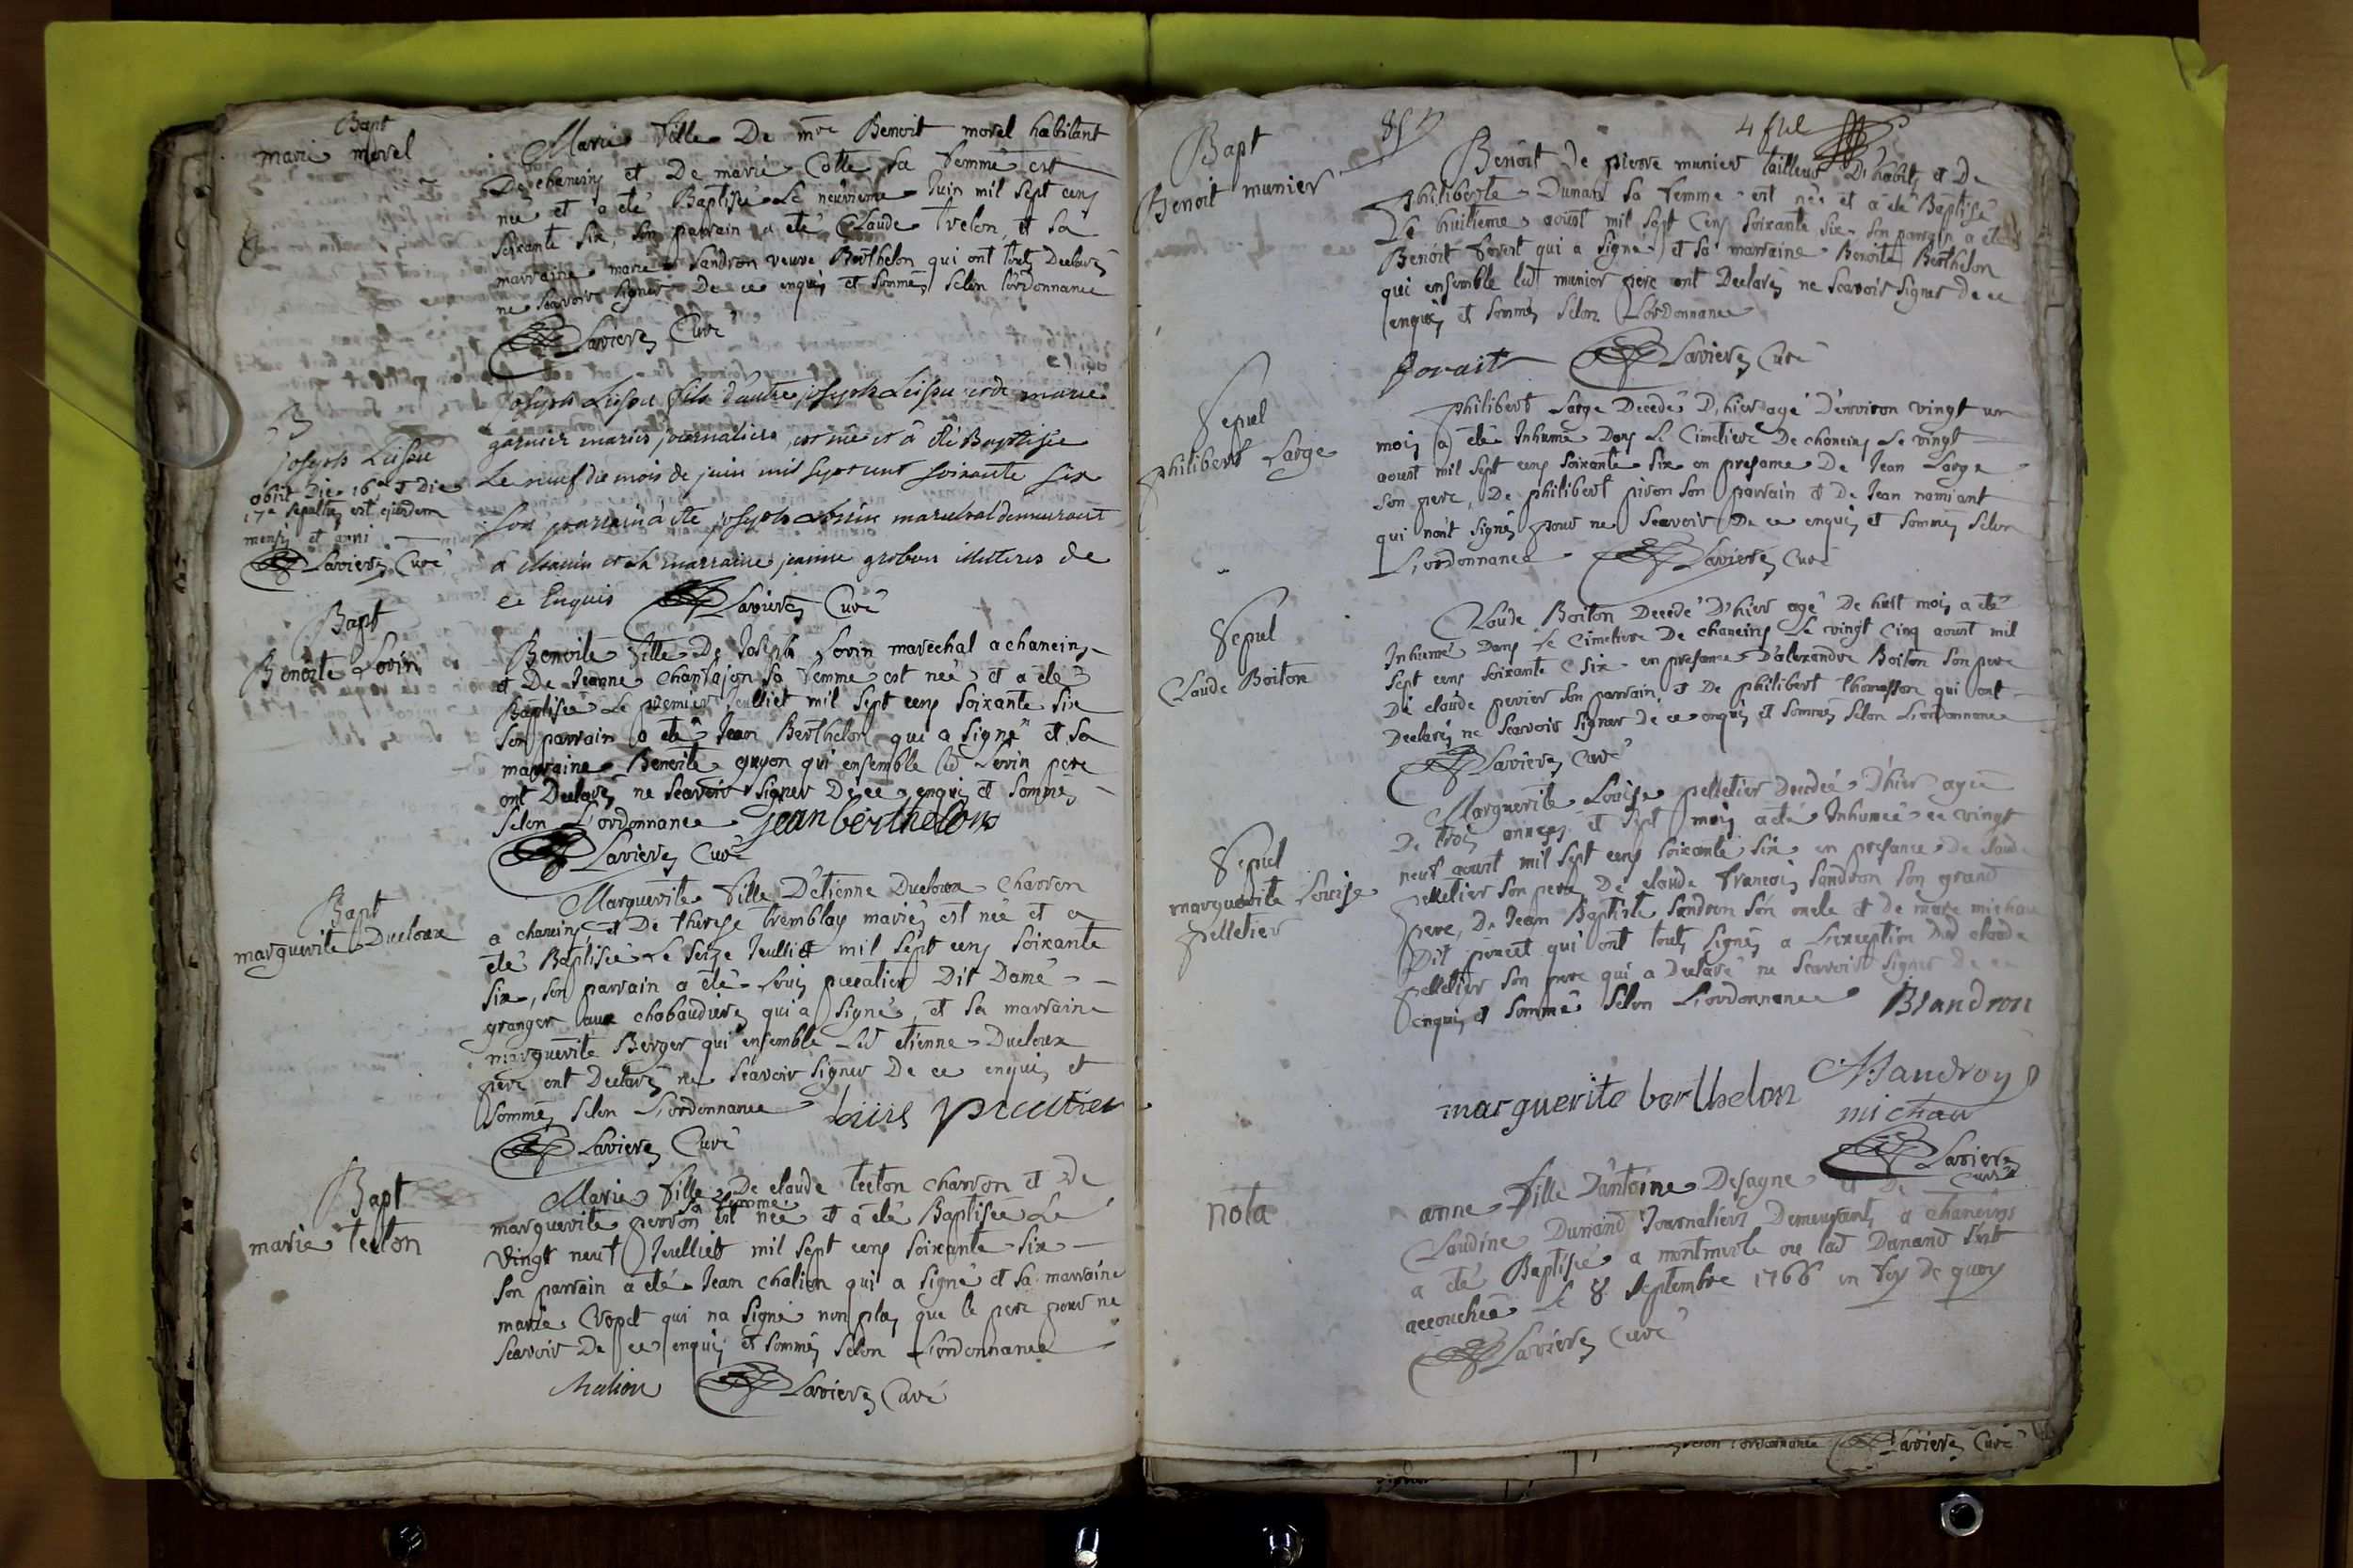 Bapt
marie morel
Marie fille De mre Benoit morel habitant
De chaneins et De marie Cotte sa femme est
née et a eté Baptisée Le neuvieme Juin mil sept cens
soixante six, son parrain a eté Claude trelon et sa
marraine marie Sandron veuve Berthelon qui ont touts Declarés
ne scavoir signer De ce enquis et sommés selon l'ordonnance
Lavieres Curé
B
joseph
obiit Die 16a et Die
17a sepultus est ejusdem
mensis et anni
Lavieres Curé
joseph fils d'autre joseph et de marie
garnier mariés journaliers est né et à été Baptisée
Le neuf du mois de juin mil sept cent soixante six
son parrain à été joseph marechal demeurant
a et sa marraine jeanne illiteres de
ce Enquis Lavieres Curé
Bapt
Benoite Lovin
Benoite fille De Joseph Lovin marechal a chaneins
et De Jeanne Chanrajon sa femme est née et a eté
Baptisée Le premier Jeulliet mil sept cens soixante six
son parrain a eté Jean Berthelon qui a signé et sa
marraine Benoite guyon qui ensemble led Lovin pere
ont Declarés ne scavoir signer De ce enquis et sommés
selon L'ordonnance jean berthelon
Lavieres Curé
Bapt
marguerite Ducloux
Marguerite fille D'etienne Ducloux charron
a chaneins et De therese tremblay mariés est née et a
eté Baptisée Le seize Jeulliet mil sept cens soixante
six, son parrain a eté Louis Dit Damé
granger aux chabaudieres qui a signé, et sa marraine
marguerite Berger qui ensemble Led etienne Ducloux
pere ont Declarés ne scavoir signer De ce enquis et
sommés selon L'ordonnance
Lavieres Curé
Bapt
marie tecton
Marie fille De claude tecton charron et De
sa femme
marguerite perron est née et a eté Baptisée Le
vingt neuf Jeulliet mil sept cens soixante six
son parrain a eté Jean chalion qui a signé et sa marraine
marie qui na signé non plus que le pere pour ne
scavoir De ce enquis et sommés selon L'ordonnance
chalion Lavieres Curé
Bapt
Benoit munier
Benoit de pierre munier tailleur D'habits et De
philiberte Dunand sa femme est né et a eté Baptisé
Le huitieme aoust mil sept Cens soixante six son parrain a eté
Benoit forest qui a signé et sa marraine Benoite Berthelon
qui ensemble led munier pere ont Declarés ne scavoir signer de ce
enquis et sommés selon L'ordonnance
Lavieres Curé
Sepul
philibert Large
philibert Large Decedé D'hier agé D'environ vingt un
mois a eté Inhumé Dans Le Cimetiere De chaneins Le vingt
aoust mil sept cens soixante six en presance De Jean Large
son pere, De philibert piron son parrain et De Jean namiant
qui n'ont signés pour ne scavoir De ce enquis et sommés selon
L'ordonnance Lavieres Curé
Sepul
Claude Boiton
Claude Boiton Decedé D'hier agé De huit mois a eté
Inhumé Dans Le Cimetiere De chaneins Le vingt Cinq aoust mil
sept cens soixante six en presance D'alexandre Boiton son pere
De claude perrier son parrain et De philibert thomasson qui ont
Declarés ne scavoir signer de ce enquis et sommés selon L'ordonnance
Lavieres Curé
Sepul
marguerite Louise
pelletier
Marguerite Louise pelletier Decedée D'hier agée
De trois années et sept mois a eté Inhumée ce vingt
neuf aoust mil sept cens soixante six en presance de claude
pelletier son pere, De claude francois sandron son grand
pere, De Jean Baptiste sandron son oncle et de
Dit poncet qui ont touts signés a L'exception Dud claude
pelletier son pere qui a Declaré ne scavoir signer de ce
enquis et sommé selon L'ordonnance BSandron
marguerite berthelon
michau
Lavieres
Curé
nota
anne fille D'antoine Desagne et De
Claudine Dunand Journaliers Demeurants a chaneins
a eté Baptisée a montmerle ou lad Dunand s'est
accouchée Le 8 septembre 1766 en foy de quoy
Lavieres Curé
selon l'ordonnance Lavieres Curé